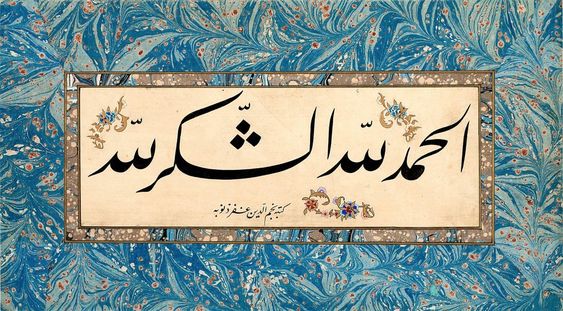 الحمد لله الشّكر لله
كتبه نجم الدين غفر ذنوبه